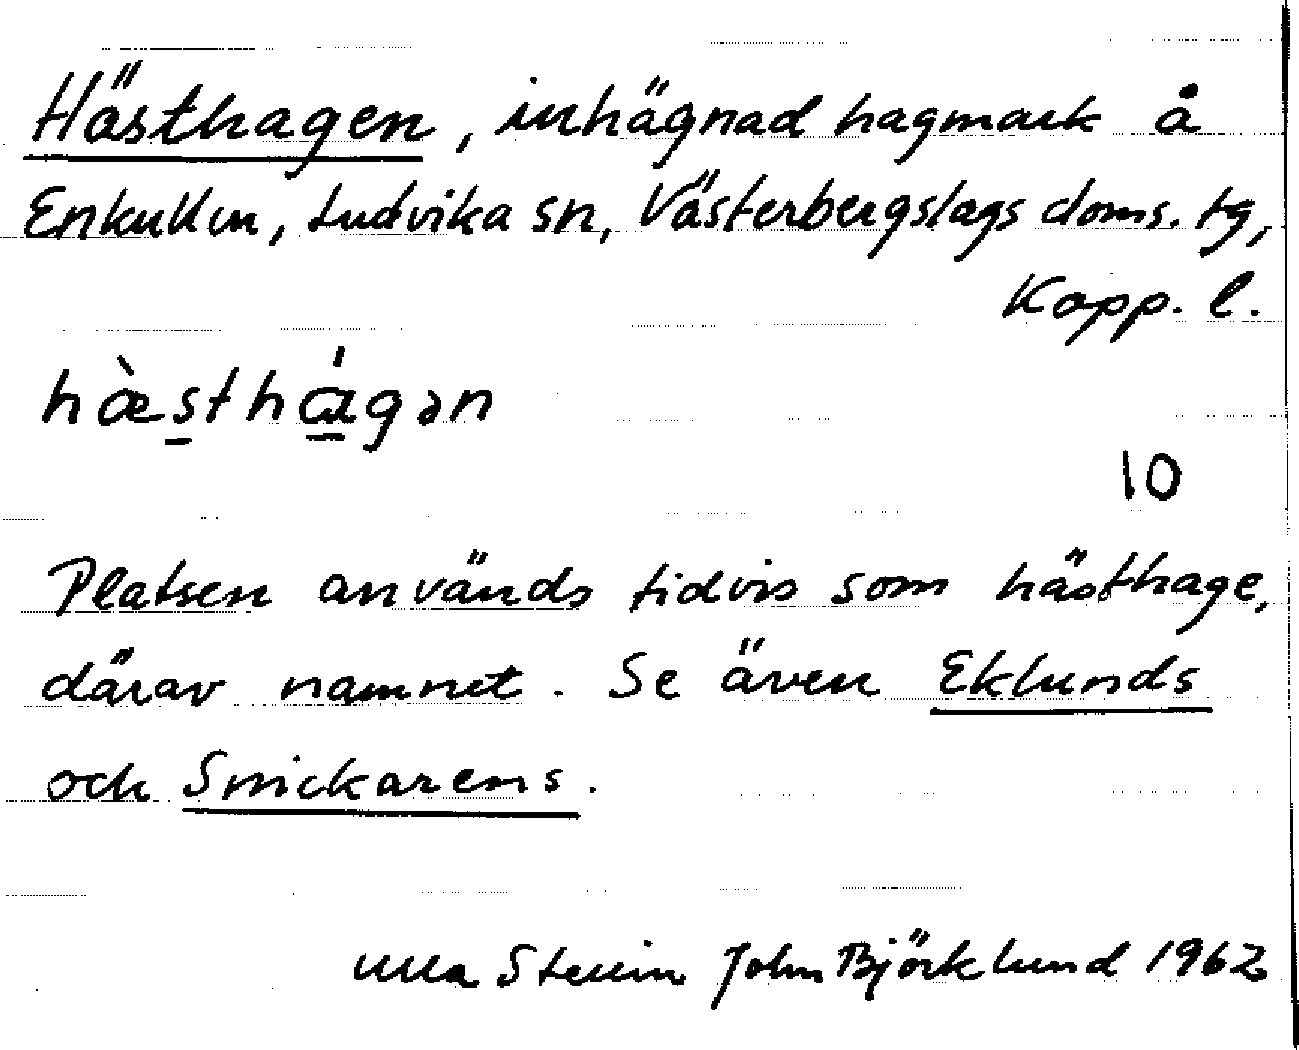 Hästhagen, inhägnad hagmark å
Enkullen, Ludvika sn, Västerbergslags doms. tg,
Kopp. l.
hæ̀sthɑ́gən
10
Platsen används tidvis som hästhage,
därav namnet. Se även Eklunds
och Snickarens.
Ulla Stenin John Björklund 1962